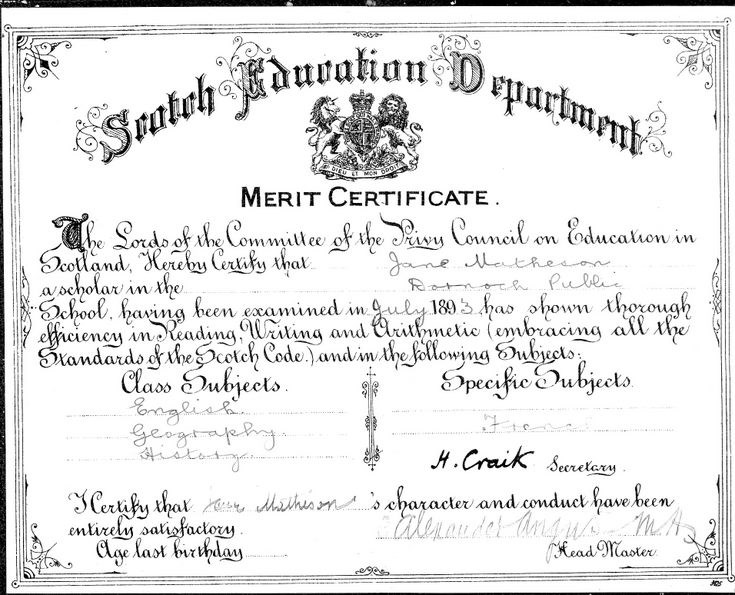 Scotch Education Department
DIEU ET MON DROIT
MERIT CERTIFICATE.
The Lords of the Committee of the Privy Council on Education in
Scotland, Hereby Certify that Jane Matheson
a scholar in the Dornoch Public
School, having been examined in July 1893 has shown thorough
efficiency in Reading, Writing and Arithmetic (embracing all the
Standards of the Scotch Code.) and in the following Subjects:
Class Subjects. Specific Subjects.
English
Geography French
History
H. Craik Secretary.
I Certify that Jane Matheson's character and conduct have been
entirely satisfactory. Alexander Angus M.A.
Age last birthday Head Master.